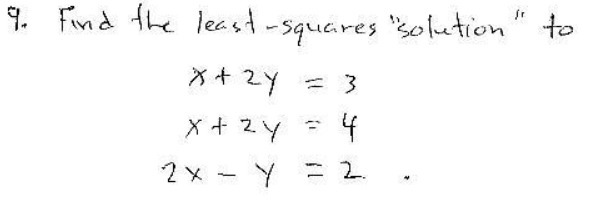 9. Find the least-squares "solution" to
x + 2y = 3
x + 2y = 4
2x - y = 2.